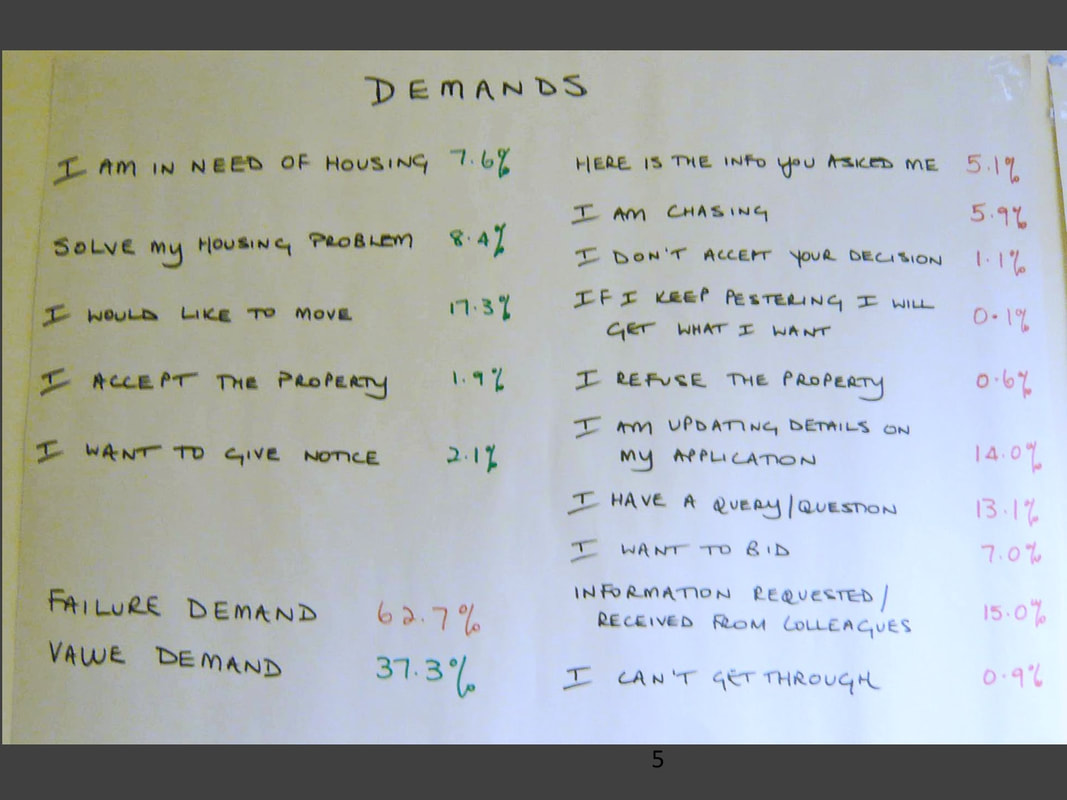 DEMANDS
I AM IN NEED OF HOUSING 7.6%
SOLVE MY HOUSING PROBLEM 8.4%
I WOULD LIKE TO MOVE 17.3%
I ACCEPT THE PROPERTY 1.9%
I WANT TO GIVE NOTICE 2.1%
FAILURE DEMAND 62.7%
VALUE DEMAND 37.3%
HERE IS THE INFO YOU ASKED ME 5.1%
I AM CHASING 5.9%
I DON'T ACCEPT YOUR DECISION 1.1%
IF I KEEP PESTERING I WILL
GET WHAT I WANT 0.1%
I REFUSE THE PROPERTY 0.6%
I AM UPDATING DETAILS ON
MY APPLICATION 14.0%
I HAVE A QUERY/QUESTION 13.1%
I WANT TO BID 7.0%
INFORMATION REQUESTED/
RECEIVED FROM COLLEAGUES 15.0%
I CAN'T GET THROUGH 0.9%
5